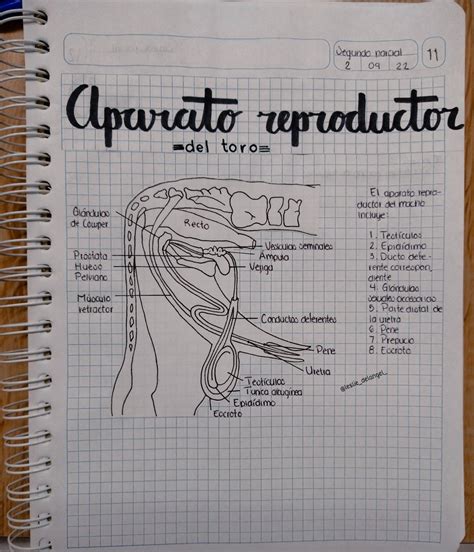 Segundo parcial
2 09 22
11
Aparato reproductor
=del toro=
El aparato repro-
ductor del macho
incluye:
1. Testículos
2. Epidídimo
3. Ducto defe-
rente correspon_
diente
4. Glándulas
sexuales accesorias
5. Parte distal de
la uretra
6. Pene
7. Prepucio
8. Escroto
Glándulas
de Cowper
Próstata
Hueso
Pelviano
Músculo
retractor
Recto
Vesículas seminales
Ámpula
Vejiga
Conductos deferentes
Pene
Uretra
Testículos
Túnica albugínea
Epidídimo
Escroto
@leslie_delangel_